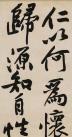 仁以何為懷
歸源知自性